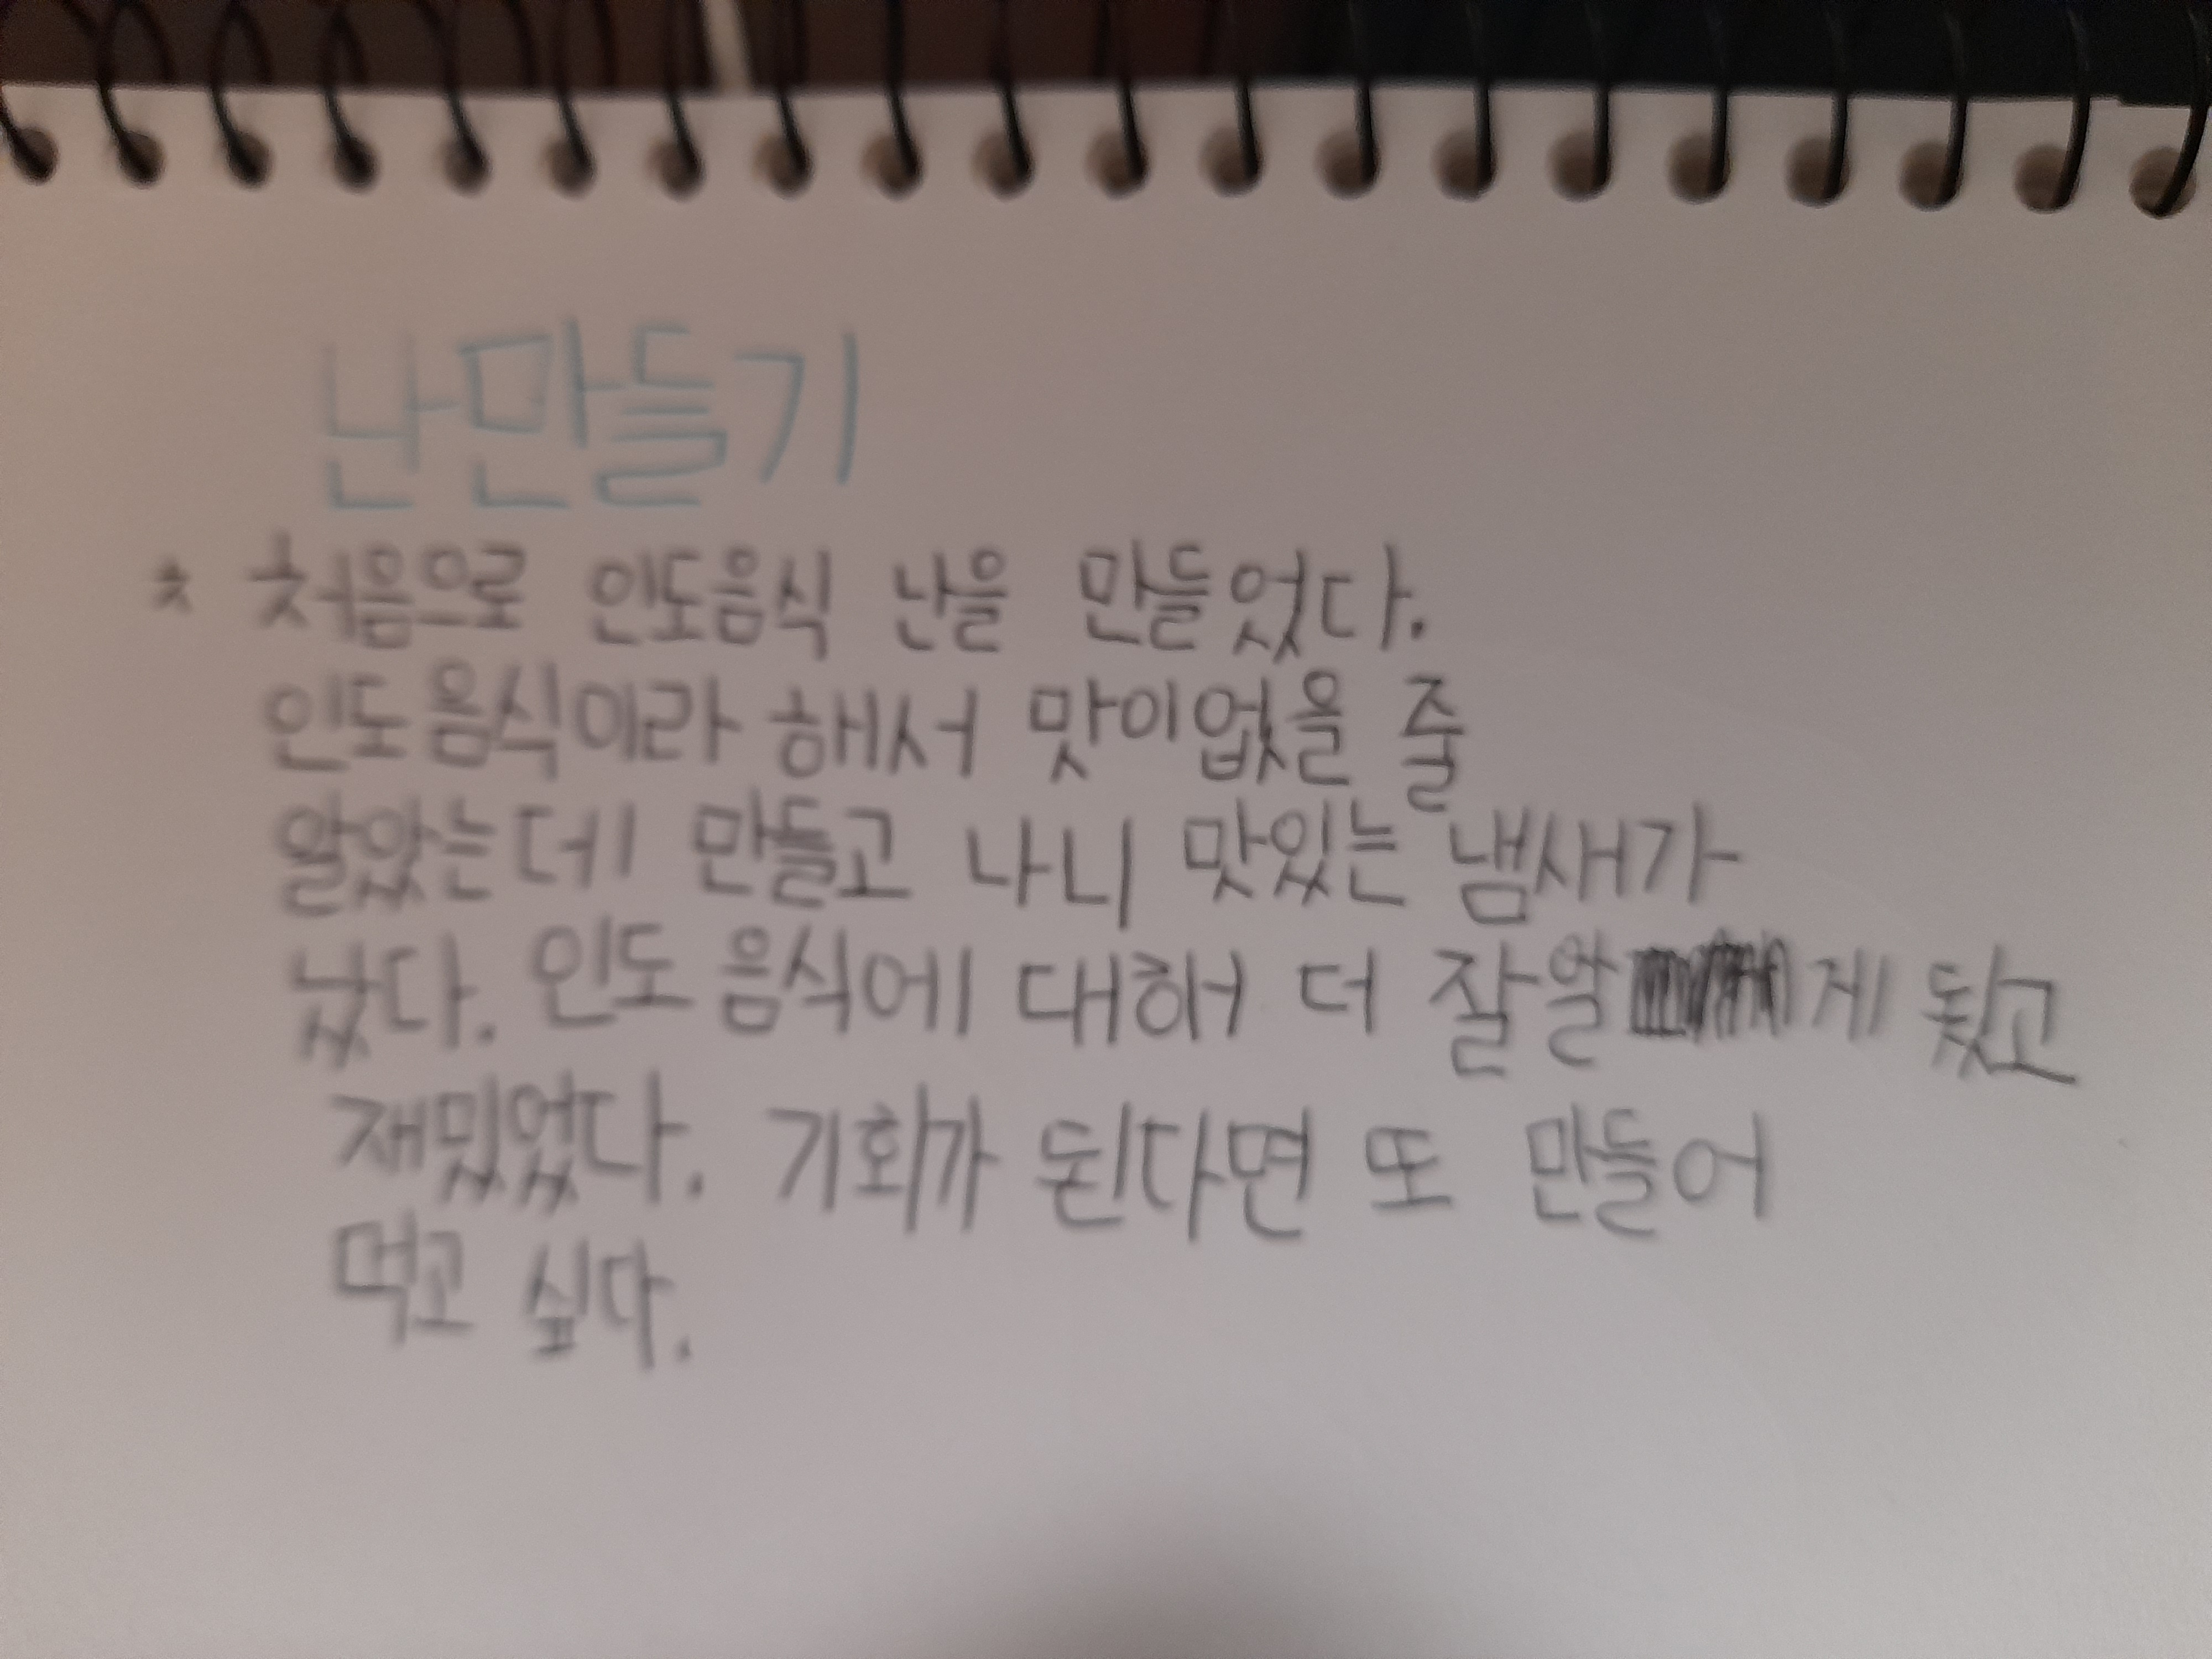 난만들기
* 처음으로 인도음식 난을 만들었다.
인도음식이라 해서 맛이없을 줄
알았는데 만들고 나니 맛있는 냄새가
났다. 인도 음식에 대해 더 잘알게 됬고
재밌었다. 기회가 된다면 또 만들어
먹고 싶다.